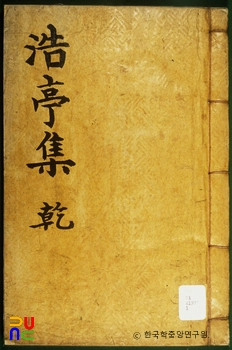 浩亭集 乾
ⓒ 한국학중앙연구원